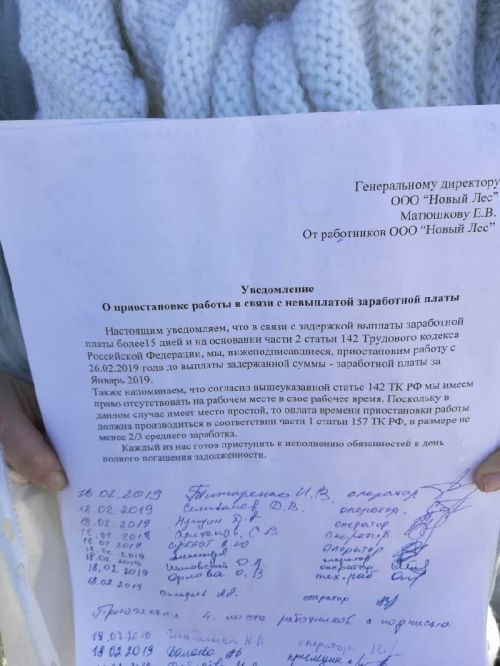 Генеральному директору
ООО “Новый Лес”
Матюшкову Е.В.
От работников ООО “Новый Лес”
Уведомление
О приостановке работы в связи с невыплатой заработной платы
Настоящим уведомляем, что в связи с задержкой выплаты заработной
платы более15 дней и на основании части 2 статьи 142 Трудового кодекса
Российской Федерации, мы, нижеподписавшиеся, приостановим работу с
26.02.2019 года до выплаты задержанной суммы - заработной платы за
Январь 2019.
Также напоминаем, что согласно вышеуказанной статье 142 ТК РФ мы имеем
право отсутствовать на рабочем месте в свое рабочее время. Поскольку в
данном случае имеет место простой, то оплата времени приостановки работы
должна производиться в соответствии части 1 статьи 157 ТК РФ, в размере не
менее 2/3 среднего заработка.
Каждый из нас готов приступить к исполнению обязанностей в день
полного погашения задолженности.
18.02.2019 Титаренко И.В. оператор
18.02.2019 Селиванов Д.В. оператор
18.02.2019 оператор
С.В оператор
оператор
оператор
18.02.2019 оператор
18.02.2019 Орлова О.В тех.раб
18.02.2019 оператор
4 листа работников и подписи
18.02.2019 оператор
18.02.2019